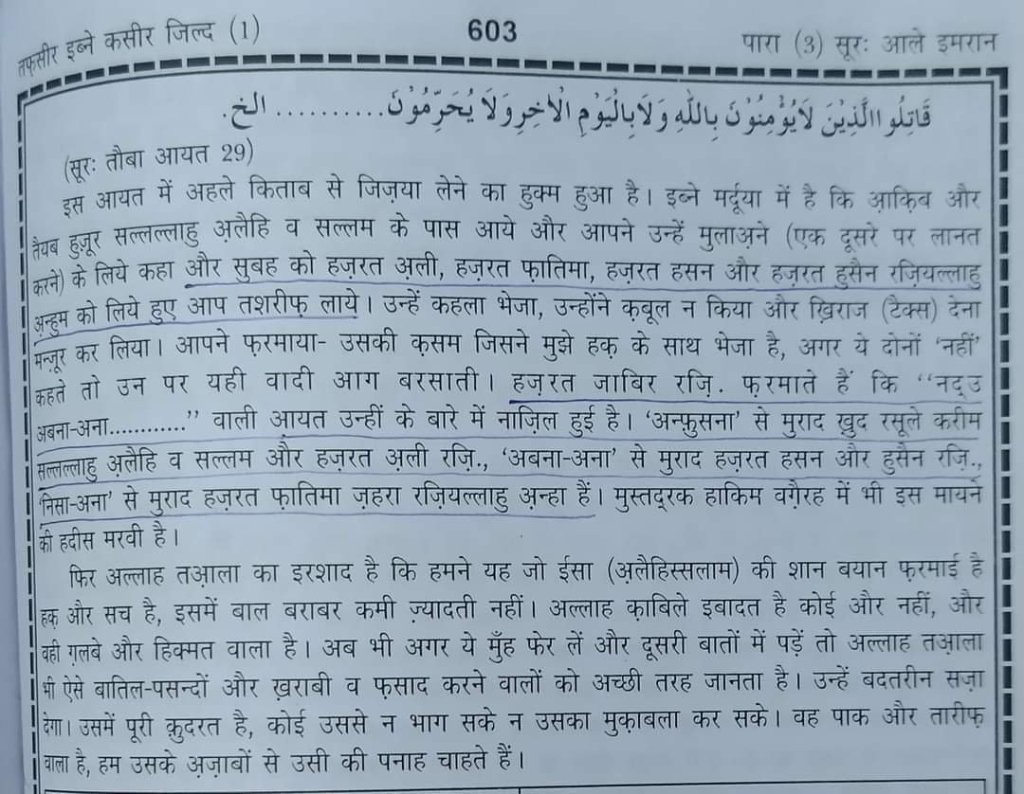 तफ़सीर इब्ने कसीर जिल्द (1)
603
पारा (3) सूरः आले इमरान
قَاتِلُوا الَّذِيْنَ لَايُؤْمِنُوْنَ بِاللّٰهِ وَلَابِالْيَوْمِ الْاٰخِرِ وَلَا يُحَرِّمُوْنَ.......... الخ.
(सूरः तौबा आयत 29)
इस आयत में अहले किताब से जिज़या लेने का हुक्म हुआ है। इब्ने मर्दूया में है कि आ़क़िब और
तैयब हुज़ूर सल्लल्लाहु अ़लैहि व सल्लम के पास आये और आपने उन्हें मुलाअ़ने (एक दूसरे पर लानत
करने) के लिये कहा और सुबह को हज़रत अ़ली, हज़रत फ़ातिमा, हज़रत हसन और हज़रत हुसैन रज़ियल्लाहु
अ़न्हुम को लिये हुए आप तशरीफ़ लाये। उन्हें कहला भेजा, उन्होंने क़बूल न किया और ख़िराज (टेक्स) देना
मन्ज़ूर कर लिया। आपने फ़रमाया- उसकी क़सम जिसने मुझे हक़ के साथ भेजा है, अगर ये दोनों ‘नहीं’
कहते तो उन पर यही वादी आग बरसाती। हज़रत जाबिर रज़ि. फ़रमाते हैं कि ‘‘नद्उ
अबना-अना............’’ वाली आयत उन्हीं के बारे में नाज़िल हुई है। ‘अन्फ़ुसना’ से मुराद ख़ुद रसूले करीम
सल्लल्लाहु अ़लैहि व सल्लम और हज़रत अ़ली रज़ि., ‘अबना-अना’ से मुराद हज़रत हसन और हुसैन रज़ि.,
‘निसा-अना’ से मुराद हज़रत फ़ातिमा ज़हरा रज़ियल्लाहु अ़न्हा हैं। मुस्तद्रक हाकिम वग़ैरह में भी इस मायने
की हदीस मरवी है।
फिर अल्लाह तआ़ला का इरशाद है कि हमने यह जो ईसा (अ़लैहिस्सलाम) की शान बयान फ़रमाई है
हक़ और सच है, इसमें बाल बराबर कमी ज़्यादती नहीं। अल्लाह क़ाबिले इबादत है कोई और नहीं, और
वही ग़लबे और हिक्मत वाला है। अब भी अगर ये मुँह फेर लें और दूसरी बातों में पड़ें तो अल्लाह तआ़ला
भी ऐसे बातिल-पसन्दों और ख़राबी व फ़साद करने वालों को अच्छी तरह जानता है। उन्हें बदतरीन सज़ा
देगा। उसमें पूरी क़ुदरत है, कोई उससे न भाग सके न उसका मुक़ाबला कर सके। वह पाक और तारीफ़
वाला है, हम उसके अ़ज़ाबों से उसी की पनाह चाहते हैं।